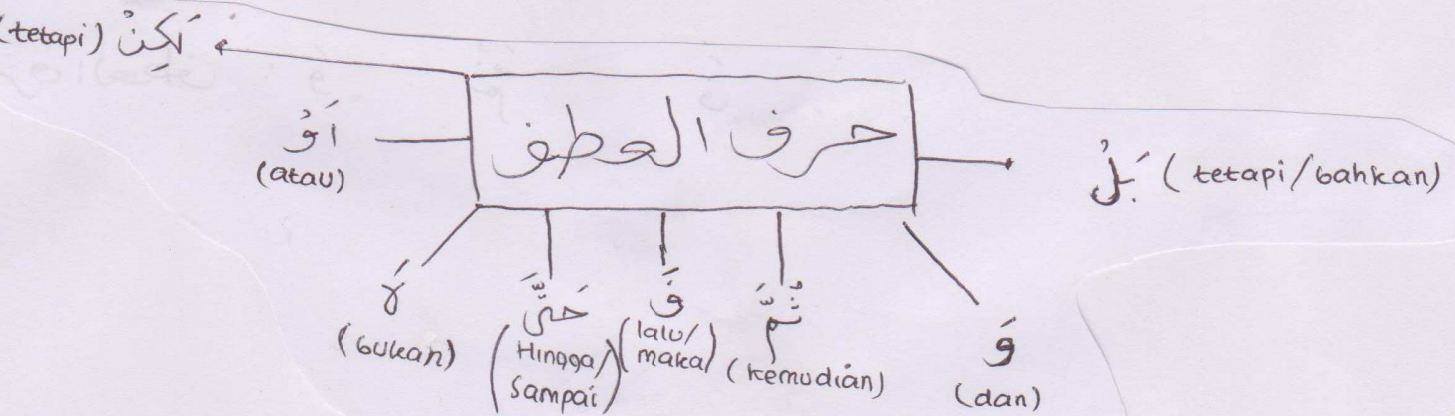 (tetapi) لَكِنْ
حرف العطف
اَوْ
(atau)
بَلْ (tetapi/bahkan)
لَا
(bukan)
حَتَّى
(Hingga/
Sampai)
فَ
(lalu/
maka)
ثُمَّ
(kemudian)
وَ
(dan)